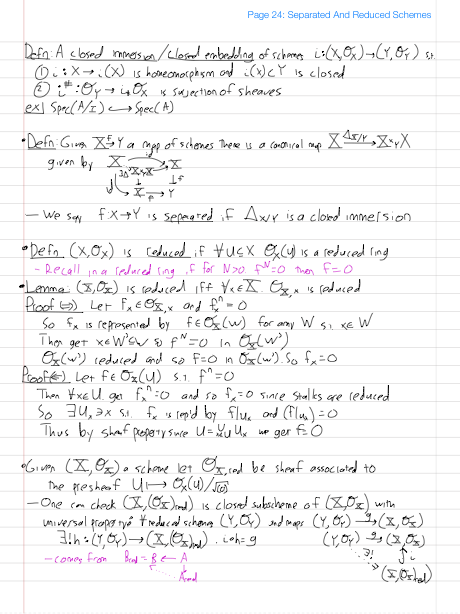 Page 24: Separated And Reduced Schemes
Defn: A closed immersion/closed embedding of schemes i:(X,O_X)→(Y,O_Y) s.t.
① i: X→i(X) is homeomorphism and i(X)⊂Y is closed
② i^#: O_Y → i_*O_X is surjection of sheaves
ex| Spec(A/I) ↪ Spec(A)
•Defn: Given X →f Y a map of schemes there is a canonical map X →Δ_{X/Y} X×_Y X
given by X → X
∃! X×_Y X
↓ ↓f
X →f Y
– We say f:X→Y is separated if Δ_{X/Y} is a closed immersion
•Defn (X,O_X) is reduced if ∀U⊆X O_X(U) is a reduced ring
– Recall in a reduced ring if for N>0 f^N=0 then f=0
•Lemma: (X,O_X) is reduced iff ∀x∈X O_{X,x} is reduced
Proof(⇒) Let f_x∈O_{X,x} and f_x^n=0
So f_x is represented by f∈O_X(W) for any W s.t. x∈W
Then get x∈W'⊆W so f^N=0 in O_X(W')
O_X(W') reduced and so f=0 in O_X(W'). So f_x=0
Proof(⇐) Let f∈O_X(U) s.t. f^n=0
Then ∀x∈U get f_x^n=0 and so f_x=0 since stalks are reduced
So ∃U_x∋x s.t. f_x is rep'd by f|_{U_x} and (f|_{U_x})=0
Thus by sheaf property since U=∪U_x we get f=0
•Given (X,O_X) a scheme let O_{X,red} be sheaf associated to
the presheaf U↦O_X(U)/√(0)
– One can check (X,(O_X)_red) is closed subscheme of (X,O_X) with
universal property ∀ reduced schemes (Y,O_Y) and maps (Y,O_Y) →g (X,O_X)
∃!h:(Y,O_Y)→(X,(O_X)_red). i∘h=g
(Y,O_Y) →g (X,O_X)
∃! ↑i
(X,(O_X)_red)
– comes from B_red = B ← A
A_red